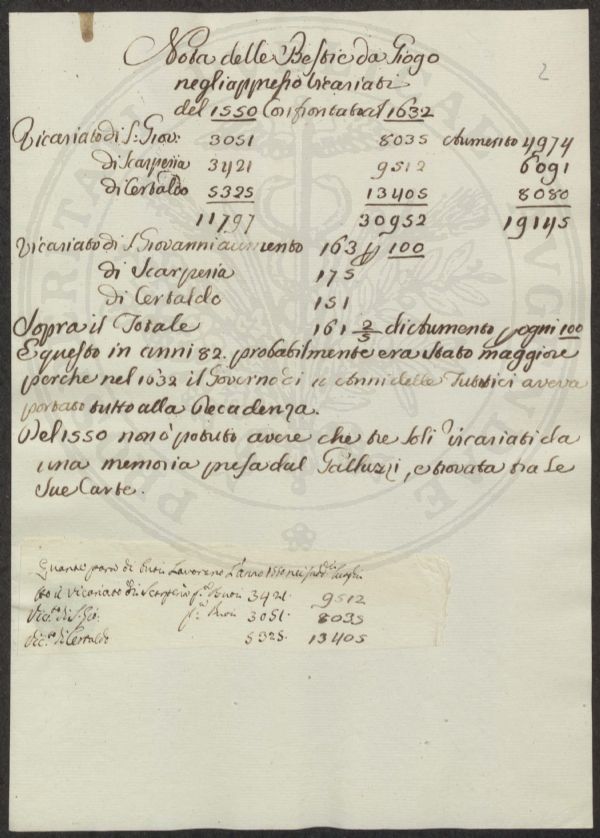 2
Nota delle Bestie da Giogo
negli appresso Vicariati
del 1550 Confrontata col 1632
Vicariato di S: Giov: 3051 8035 Aumento 4974
di Scarperia 3421 9512 6091
di Certaldo 5325 13405 8080
11797 30952 19145
Vicariato di S Giovanni aumento 163 p 100
di Scarperia 175
di Certaldo 151
Sopra il Totale 161 2/5 di Aumento p ogni 100
E questo in anni 82. probabilmente era stato maggiore
perche nel 1632 il Governo di Anni delle Tutrici aveva
portato tutto alla Decadenza.
Del 1550 non ò potuto avere che tre soli Vicariati da
una memoria presa dal Galluzzi, e trovata tra le
sue Carte.
Quante para di buoi Lavorono l'anno
tto il Vicariato di Scarperia pa. buoi 3421. 9512
Vic.to di S. Gio: pa. buoi 3051. 8035
Vic.to di Certaldo 5325. 13405